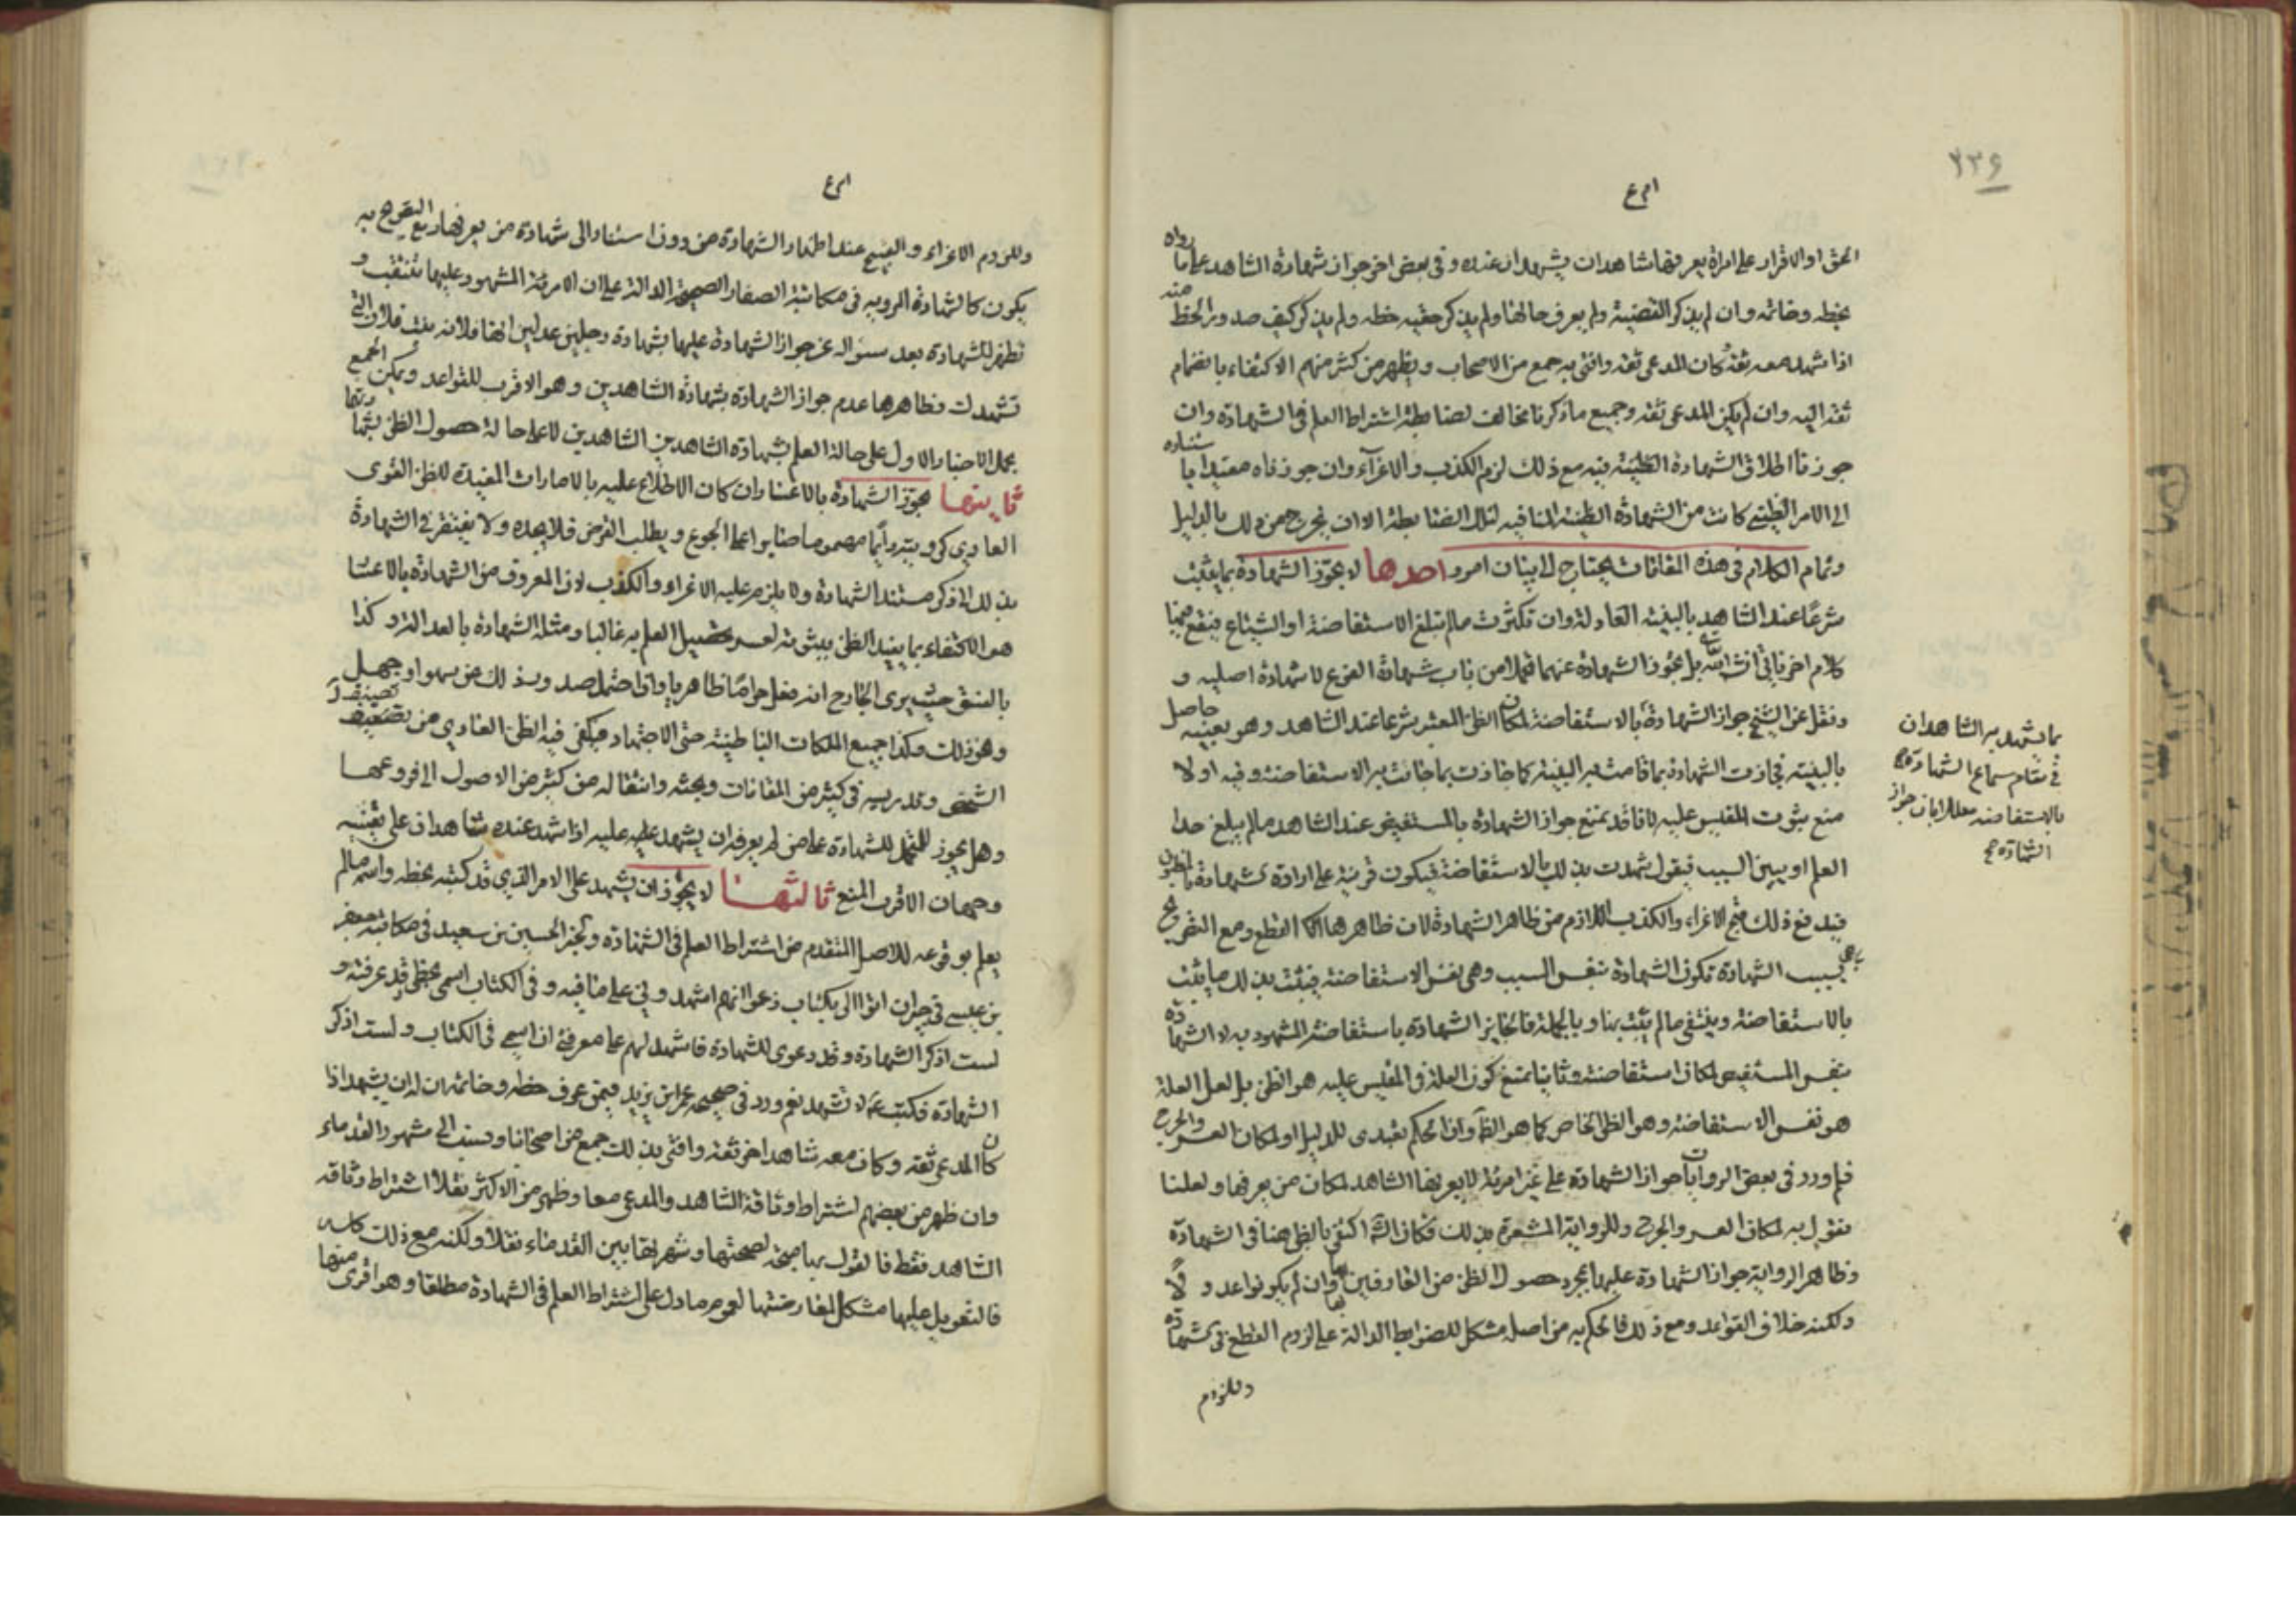 ٢٣۶
الحق او الاقرار على امراة يعرفها شاهدان يشهدان عنده وفى بعض اخر جواز شهادة الشاهد على ما رواه
بخطه وخاتمه وان لم يذكر القضية ولم يعرف حالها ولم يذكر حقيه خطه ولم يذكر كيف صدور الخط منه
اذا شهد معه ثقة وكان المدعى ثقة وافتى به جمع من الاصحاب ويظهر من كثير منهم الاكتفاء بانضمام
ثقة اليه وان لم يكن المدعى ثقة وجميع ما ذكرنا مخالف لضابطة اشتراط العلم فى الشهادة وان
جوزنا اطلاق الشهادة الظنية فيه مع ذلك لزم الكذب والاغراء وان جوزناه مقيدا باستناده
الى الامر الظنى كانت من الشهادة الظنية المنافية لتلك الضابطة الا ان يخرج جميع ذلك بالدليل
وتمام الكلام فى هذه المقامات يحتاج الى بيان امور احدها لا يجوز الشهادة بما يثبت
شرعًا عند الشاهد بالبينة العادلة وان تكثرت ما لم تبلغ الاستفاضة او الشياع فيقع فيها
كلام اخر ياتى انشاء الله بل يجوز الشهادة عنهما تحملا من باب شهادة الفرع لا شهادة اصلية و
ونقل عن الشيخ جواز الشهادة بالاستفاضة لمكان الظن المعتبر شرعا عند الشاهد وهو بعينه حاصل
بالبينة فجازت الشهادة بما قامت به البينة كما جازت بما جائت به الاستفاضة وفيه اولا
منع ثبوت المقيس عليه لانا قد نمنع جواز الشهادة بالمستفيض عند الشاهد ما لم يبلغ حد
العلم او يبين السبب فيقول شهدت بذلك بالاستفاضة فيكون قرينة على ارادة شهادة بالمظنون
فيدفع ذلك قبح الاغراء والكذب اللازم من ظاهر الشهادة لان ظاهرها القطع ومع التصريح
بسبب الشهادة تكون الشهادة بنفس السبب وهى نفس الاستفاضة فيثبت بذلك ما يثبت
بالاستفاضة وينتفى ما لم يثبت بها وبالجملة فالجايز الشهادة باستفاضة المشهود به لا الشهادة
بنفس المستفيض لمكان استفاضته وثانيا نمنع كون العلة فى المقيس عليه هو الظن بل لعل العلة
هو نفس الاستفاضة وهو الظن الخاص كما هو الظ وان الحكم تعبدى للدليل او لمكان العسر والحرج
نعم ورد فى بعض الروايات جواز الشهادة على غير امرئة لا يعرفها الشاهد لمكان من يعرفها ولعلنا
نقول به لمكان العسر والحرج وللرواية المشعرة بذلك فكان اكتفى بالظن هنا فى الشهادة
وظاهر الرواية جواز الشهادة عليها بمجرد حصول الظن من العارفين بها وان لم يكونوا عدولًا
ولكنه خلاف القواعد ومع ذلك فالحكم به من اصله مشكل للضوابط الدالة على لزوم القطع فى الشهادة
وللزوم
بما يشهد به الشاهدان
فى مقام سماع الشهادة
بالاستفاضة معللا بان جواز
الشهادة صح
وللزوم الاغراء والقبيح عند اظهار الشهادة من دون اسناد الى شهادة من يعرفها ومع التصريح به
يكون كالشهادة المروية فى مكاتبة الصفار الصحيحة الدالة على ان الامرئة المشهود عليها تتنقب و
تظهر للشهادة بعد سئواله عن جواز الشهادة عليها بشهادة رجلين عدلين انها فلانة بنت فلان التى
تشهدك وظاهرها عدم جواز الشهادة بشهادة الشاهدين وهو الاقرب للقواعد ويمكن الجمع
بحمل الاخبار الاول على حالة العلم بشهادة الشاهدين لا على حالة حصول الظن بشهادتهما
ثانيتها يجوز الشهادة بالاعسار ان كان الاطلاع عليه بالامارات المفيدة للظن القوى
العادى كرويته دايما مهموما صابرا على الجوع ويطلب القرض فلا يجده ولا يفتقر فى الشهادة
بذلك الى ذكر مستند الشهادة ولا يلزم عليه الاغراء والكذب لان المعروف من الشهادة بالاعسار
هو الاكتفاء بما يفيد الظن بثبوته لعسر تحصيل العلم به غالبا ومثله الشهادة بالعدالة وكذا
بالفسق حيث يرى الجارح انه فعل حرامًا ظاهريا واذا احتمل صدور ذلك عن سهو او جهل
وهو ذلك وهكذا جميع الملكات الباطنية حتى الاجتهاد فيكفى فيه الظن العادى من تصنيف
الشخص وتدريسه فى كثير من المقامات وبحثه وانتقاله من كثير من الاصول الى فروعها
وهل يجوز للتحمل للشهادة على من لم يعرفه ان يشهد عليه اذا شهد عنده شاهدان على تعيينه
وجهان الاقرب المنع ثالثها لا يجوز ان يشهد على الامر الذى قد كتبه بخطه واسمه ما لم
يعلم بوقوعه للاصل المتقدم من اشتراط العلم فى الشهادة ولخبر الحسين بن سعيد فى مكاتبة جعفر
بن عيسى فى جيران اتوا الى بكتاب زعموا انهم اشهدونى على ما فيه وفى الكتاب اسمى بخطى قد عرفته و
لست اذكر الشهادة وقد دعونى للشهادة فاشهد لهم على معرفتى ان اسمى فى الكتاب ولست اذكر
الشهادة فكتب ع لا تشهد نعم ورد فى صحيحة عمر ابن يزيد فيمن عرف خطه وخاتمه ان له ان يشهد اذا
كان المدعى ثقة وكان معه شاهد اخر ثقة وافتى بذلك جمع من اصحابنا ونسب الى مشهور القدماء
وان ظهر من بعضهم اشتراط وثاقة الشاهد والمدعى معا وظهر من الاكثر نقلا اشتراط وثاقة
الشاهد فقط فالقول بها متجه لصحتها وشهرتها بين القدماء نقلا ولكنه مع ذلك كله
فالتعويل عليها مشكل لمعارضتها لعموم ما دل على اشتراط العلم فى الشهادة مطلقا وهو اقوى منها